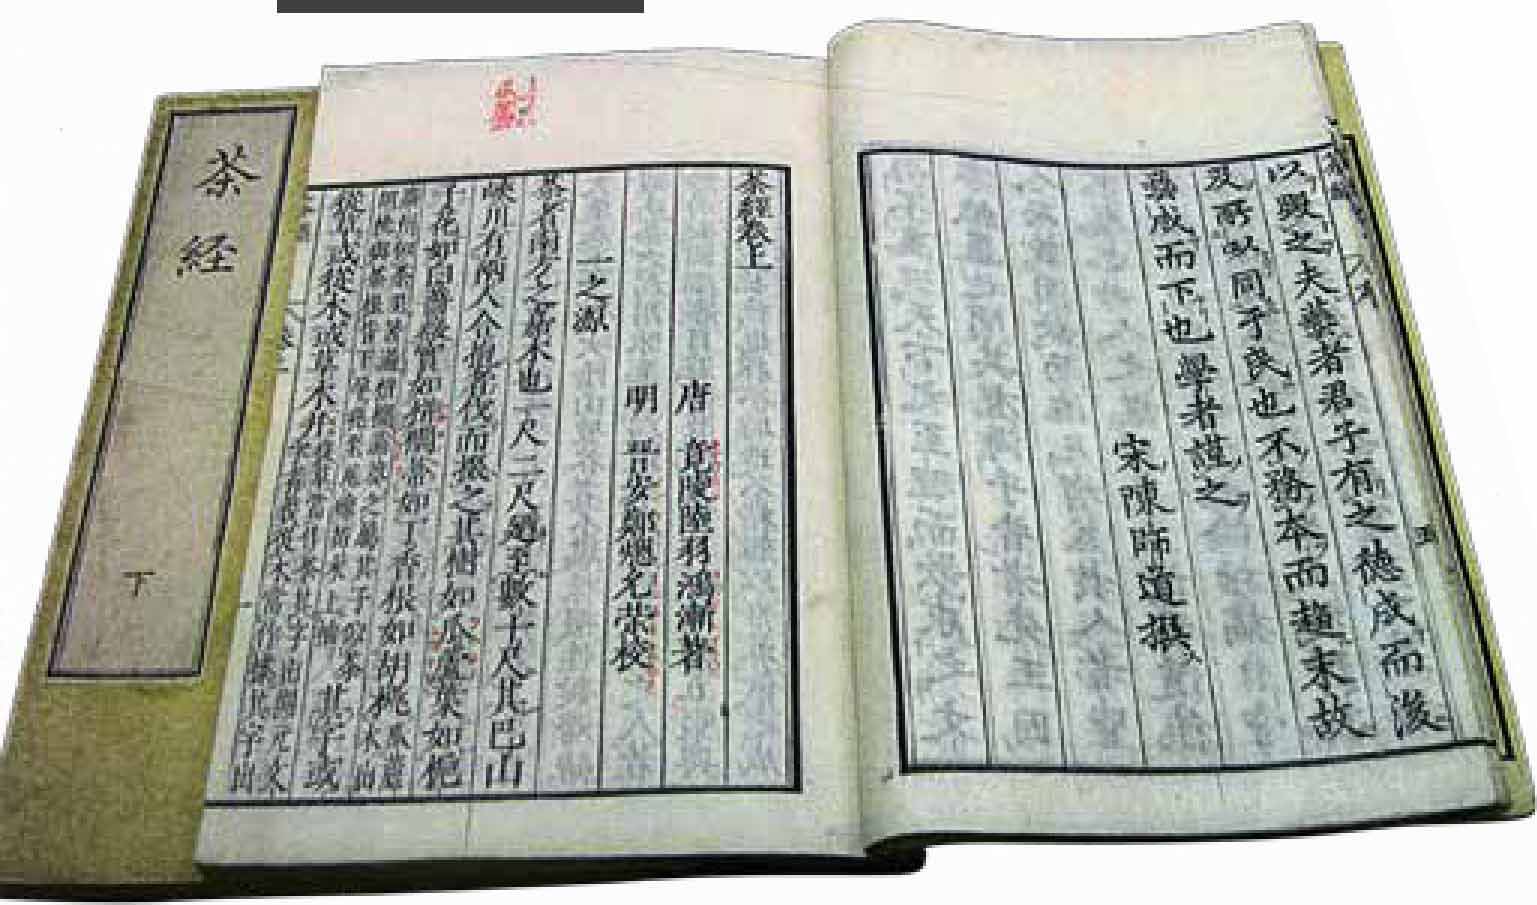 以毀之夫藝者君子有之德成而後
及所以同于民也不務本而趨末故
藝成而下也學者謹之
宋陳師道撰
茶經卷上
唐 竟陵陸羽鴻漸著
明 晉安鄭煾允榮校
一之源
茶者南方之嘉木也一尺二尺廼至數十尺其巴山
峽川有兩人合抱者伐而掇之其樹如瓜蘆葉如梔
子花如白薔薇實如栟櫚蒂如丁香根如胡桃
其字或
從草或從木或草木并
茶経
下